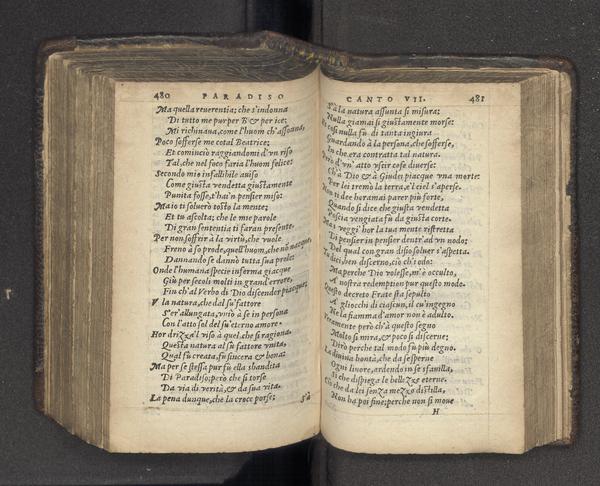 480 PARADISO
Ma quella reuerentia; che s'indonna
Di tutto me pur per B & per ice;
Mi richinaua, come l'huom ch'assonna,
Poco sofferse me cotal Beatrice;
Et cominciò raggiandomi d'vn riso
Tal, che nel foco faria l'huom felice:
Secondo mio infallibile auiso
Come giusta vendetta giustamente
Punita fosse, t'hai'n pensier miso:
Ma io ti soluerò tosto la mente;
Et tu ascolta; che le mie parole
Di gran sententia ti faran presente.
Per non soffrir à la virtù, che vuole
Freno à so prode, quell'huom, che nō nacque,
Dannando se dannò tutta sua prole:
Onde l'humana specie inferma giacque
Giù per secoli molti in grand'errore,
Fin ch'al Verbo di Dio discender piacque;
V la natura, che dal su' fattore
S'er'allungata, vnìo à se in persona
Con l'atto sol del su'eterno amore.
Hor drizza'l viso à quel, che si ragiona.
Questa natura al su fattore vnita,
Qual fù creata, fu sincera & bona:
Ma per se stessa pur fù ella sbandita
Di Paradiso; però che si torse
Da via di verità, & da sua vita.
La pena dunque, che la croce porse;
S'à
CANTO VII. 481
S'à la natura assunta si misura;
Nulla giamai si giustamente morse:
Et così nulla fù di tanta ingiura
Guardando à la persona, che sofferse,
In che era contratta tal natura.
Però d'vn' atto vscir cose diuerse:
Ch'à Dio & à Giudei piacque vna morte:
Per lei tremò la terra, e'l ciel s'aperse.
Non ti dee horamai parer più forte,
Quando si dice che giusta vendetta
Poscia vengiata fù da giusta corte.
Ma i veggi' hor la tua mente ristretta
Di pensier in pensier dentr'ad vn nodo;
Del qual con gran disio soluer s'aspetta.
Tu dici, ben discerno, ciò ch'i odo:
Ma perche Dio volesse, m'è occulto,
A nostra redemption pur questo modo.
Questo decreto Frate sta sepulto
A gliocchi di ciascun, il cu'ingegno
Ne la fiamma d'amor non è adulto.
Veramente però ch'à questo segno
Molto si mira, & poco si discerne;
Dirò perche tal modo fù più degno.
La diuina bontà, che da se sperne
Ogni liuore, ardendo in se sfauilla,
Si che dispiega le bellezze eterne.
Ciò che da lei senza mezzo distilla,
Non ha poi fine; perche non si moue
H